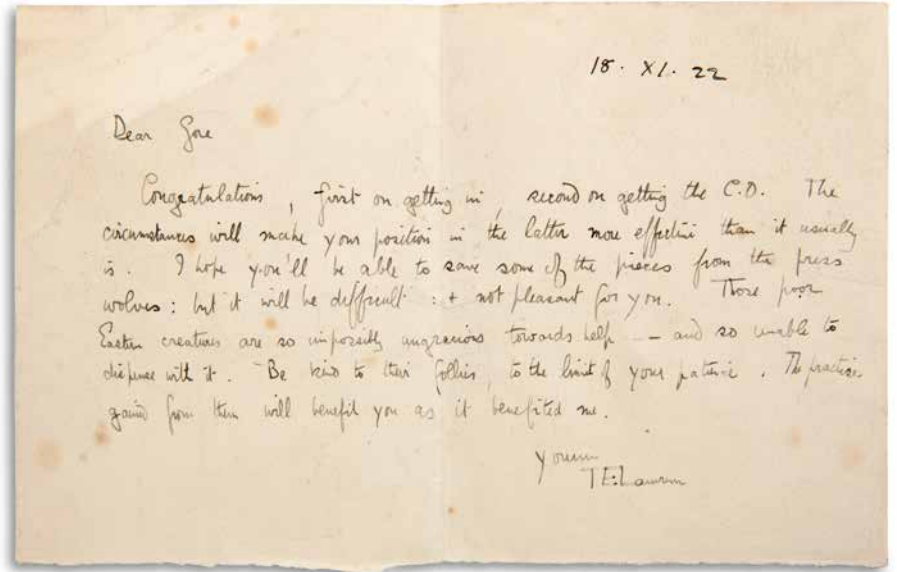 18. XI. 22
Dear Gore
Congratulations, first on getting in, second on getting the C.O. The
circumstances will make your position in the latter more effective than it usually
is. I hope you'll be able to save some of the pieces from the press
wolves: but it will be difficult: + not pleasant for you. Those poor
Eastern creatures are so impossibly ungracious towards help — and so unable to
dispense with it. Be kind to their follies, to the limit of your patience. The practice
gained from them will benefit you as it benefited me.
Yours
T E Lawrence